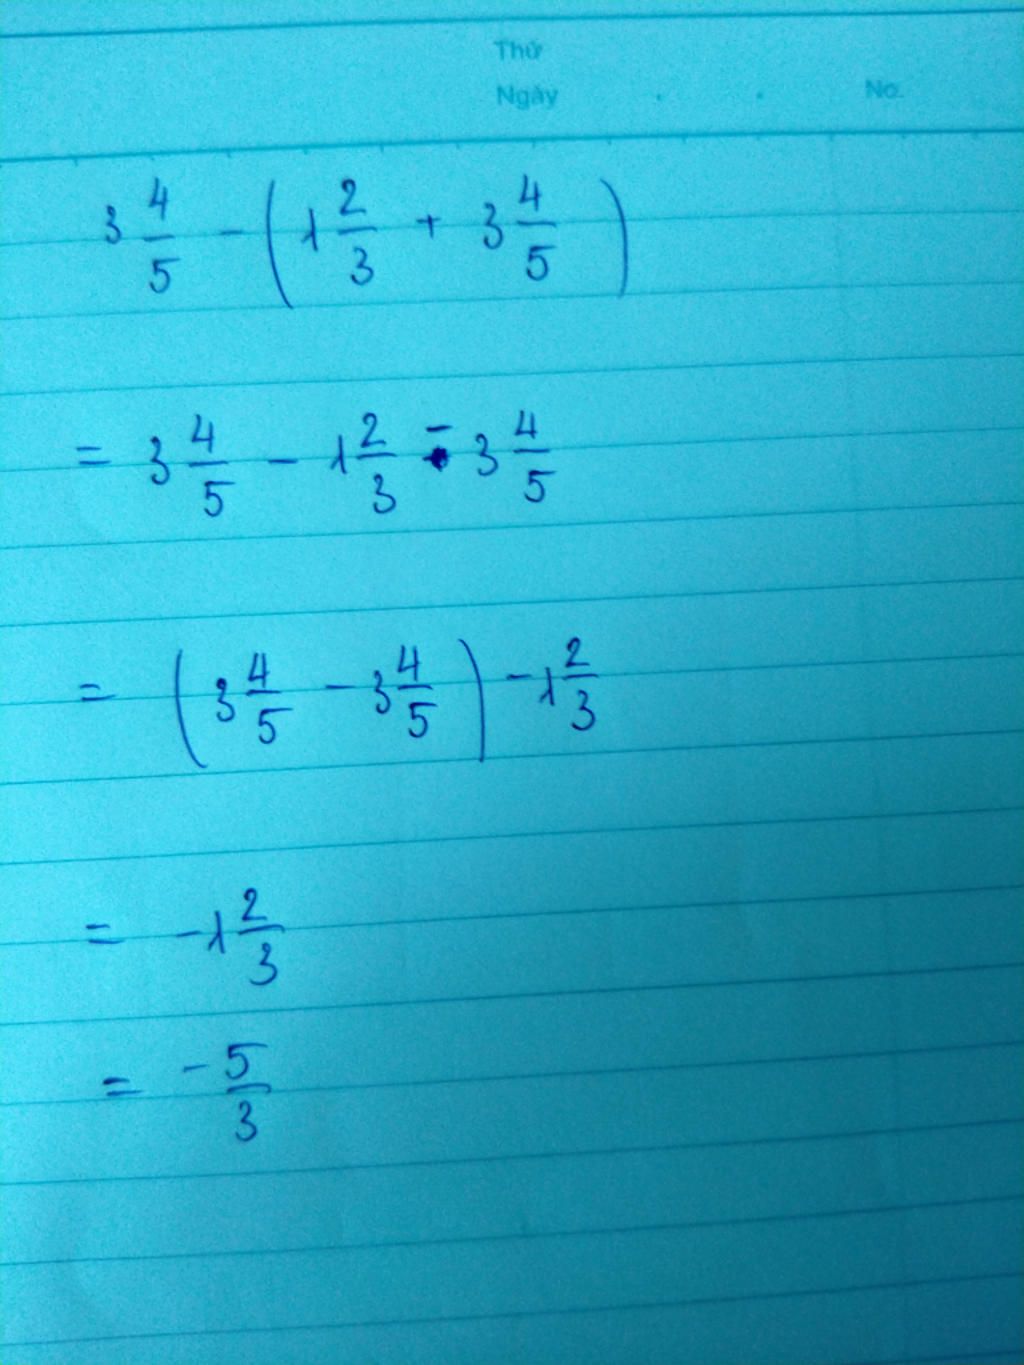 Thứ
Ngày . . No.
3 4/5 - (1 2/3 + 3 4/5)
= 3 4/5 - 1 2/3 - 3 4/5
= (3 4/5 - 3 4/5) - 1 2/3
= -1 2/3
= -5/3